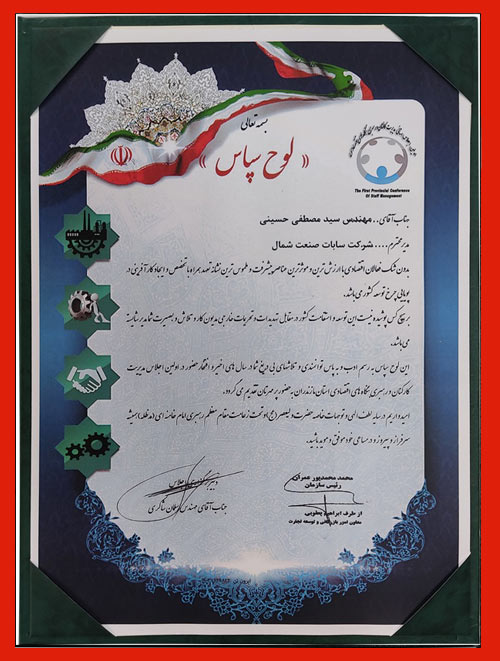 بسمه تعالی
« لوح سپاس »
The First Provincial Conference
Of Staff Management
جناب آقای .. مهندس سید مصطفی حسینی
مدیر محترم .... شرکت سابات صنعت شمال
بدون شک فعالان اقتصادی با ارزش ترین و موثرترین عناصر پیشرفت و ملموس ترین نشانه تعهد همراه با تخصص و ایجاد کار آفرینی در
پویایی چرخ توسعه کشور می باشد.
بر هیچ کس پوشیده نیست این توسعه و استقامت کشور در مقابل تهدیدات و تحریمات خارجی مدیون کار و تلاش و بصیرت شما مدیر شایسته
می باشد.
این لوح سپاس به رسم ادب و به پاس توانمندی و تلاشهای بی دریغ شما در سال های اخیر و افتخار حضور در اولین اجلاس مدیریت
کارکنان در رهبری بنگاه های اقتصادی استان مازندران به حضور پر مهرتان تقدیم می گردد.
امید داریم در سایه لطف الهی و توجهات خاصه حضرت ولیعصر (عج) و تحت زعامت مقام معظم رهبری امام خامنه ای (مدظله) همیشه
سرفراز و پیروز و در مساعی خود موفق و موید باشید.
محمد محمدپور عمران
رئیس سازمان
از طرف ابراهیم یعقوبی
معاون امور بازرگانی و توسعه تجارت
دبیر اجلاس
جناب آقای مهندس شاکری